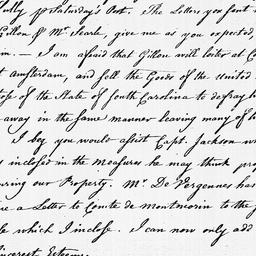 fully pr Saturday's Post. The Letters you sent
Gillon & Mr. Searle, give me as you expected,
m. — I am afraid that Gillon will loiter at C
t Amsterdam, and sell the Goods of the United
those of the State of South Carolina to defray
away in the same manner leaving many of
I beg you would assist Capt. Jackson
y inclosed in the Measures he may think pro
uring our Property. Mr. De Vergennes has
me a Letter to Comte de Montmorin to the
le which I inclose. I can now only add
incerest Esteem.